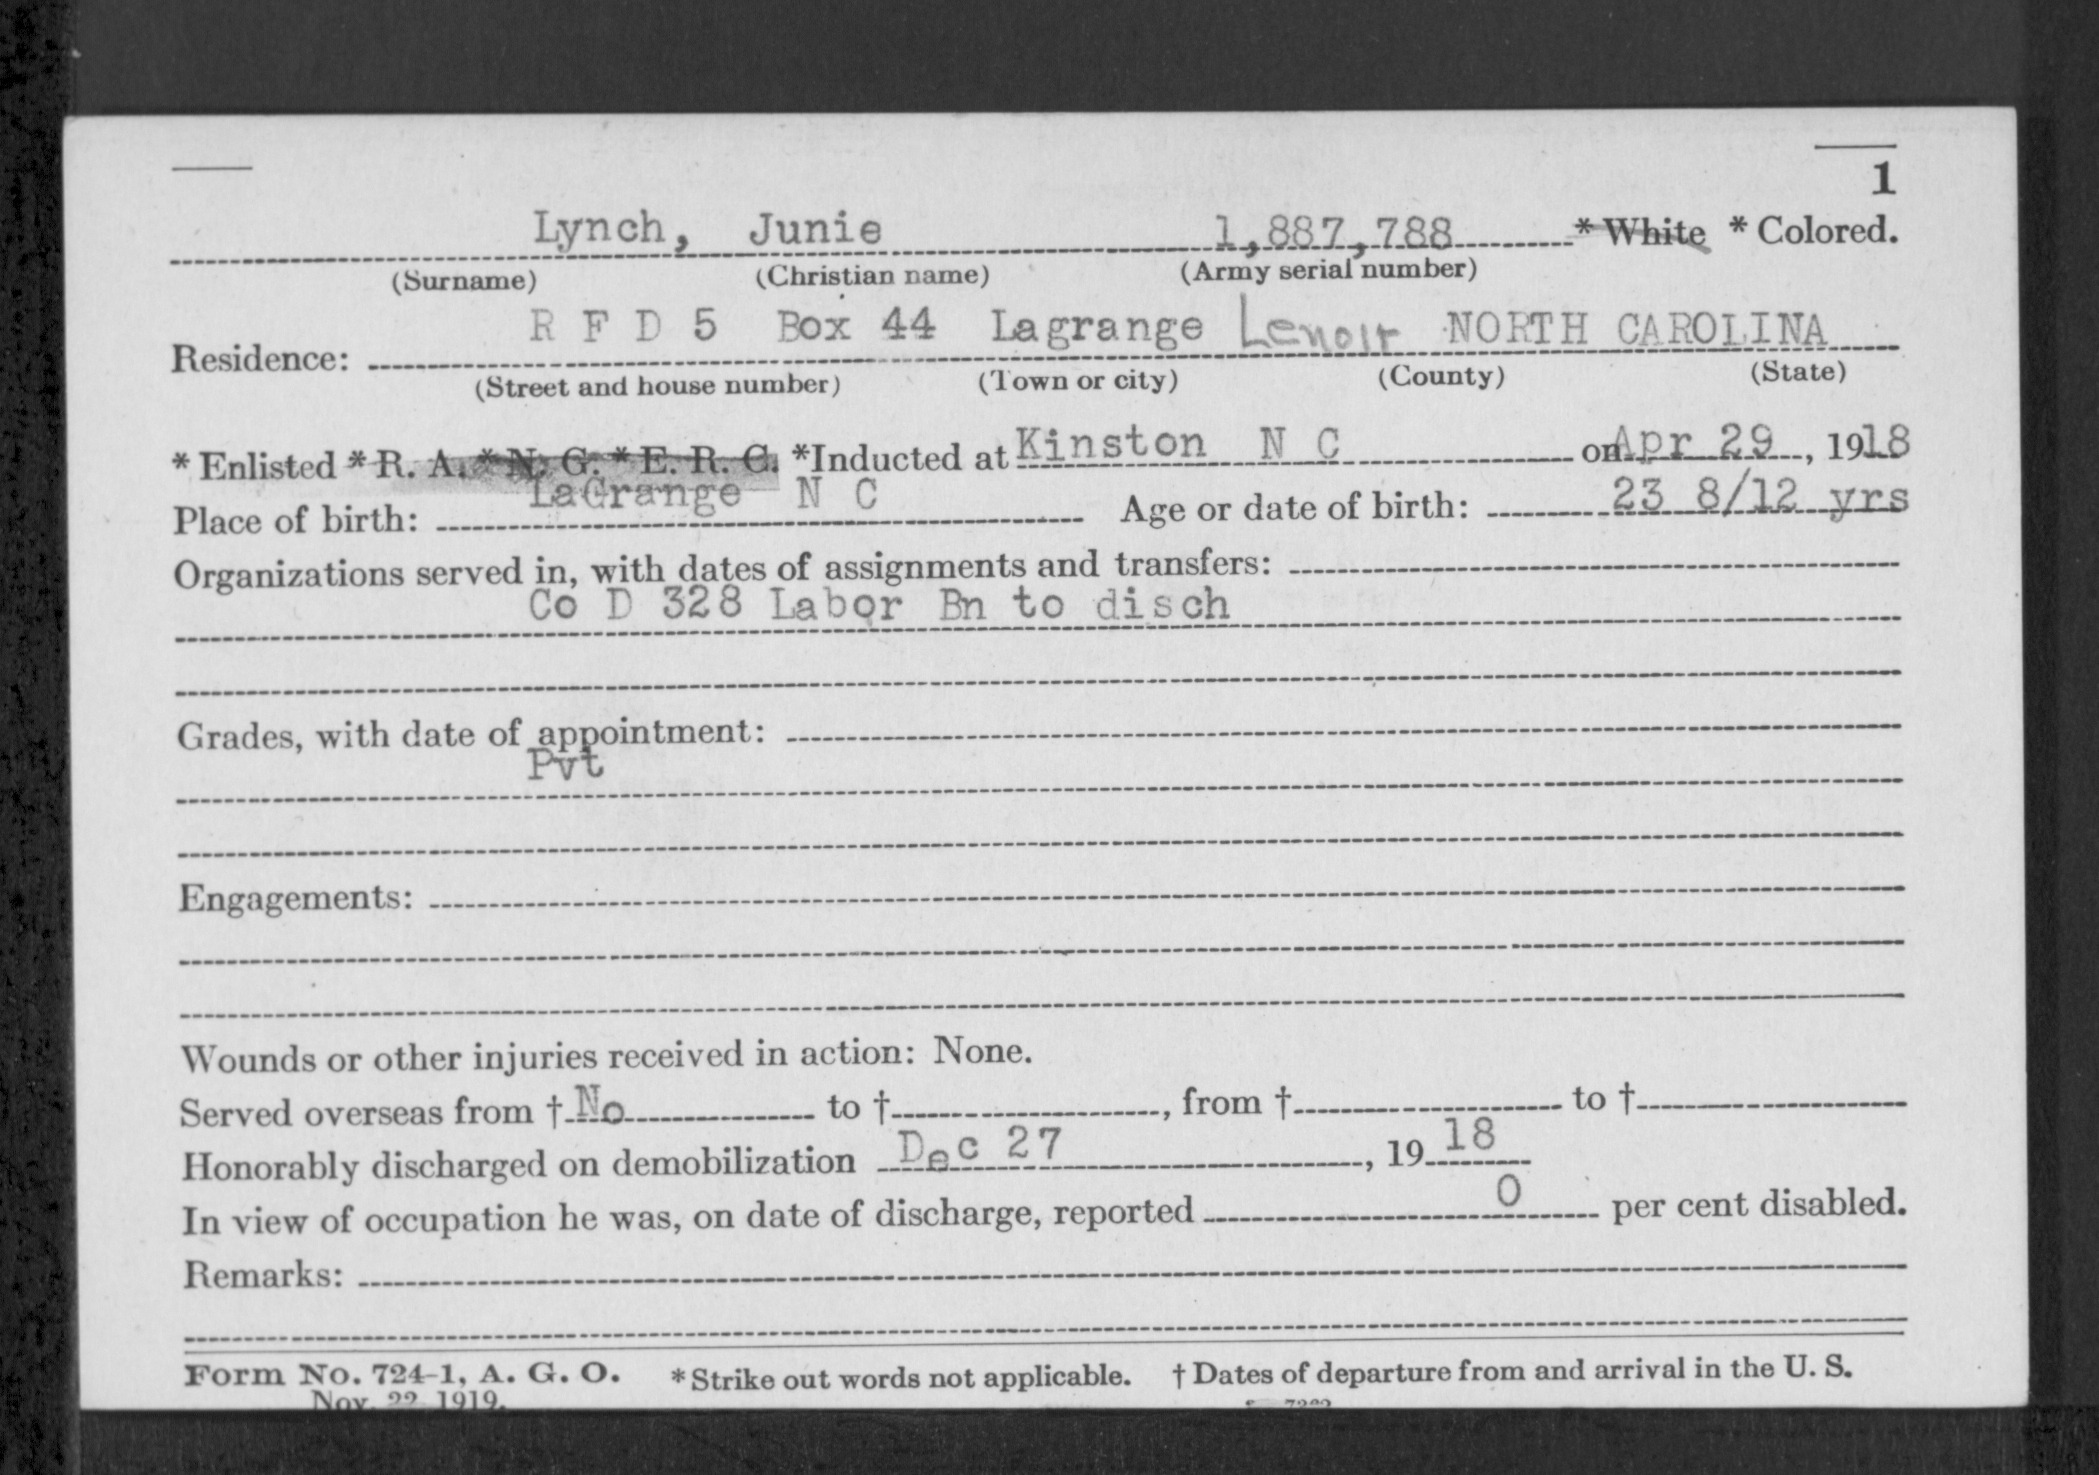 1
Lynch, Junie 1,887,788 * White * Colored.
(Surname) (Christian name) (Army serial number)
R F D 5 Box 44 Lagrange Lenoir NORTH CAROLINA
Residence:
(Street and house number) (Town or city) (County) (State)
* Enlisted * R. A. * N. G. * E. R. C. *Inducted at Kinston N C on Apr 29, 1918
Place of birth: LaGrange N C Age or date of birth: 23 8/12 yrs
Organizations served in, with dates of assignments and transfers:
Co D 328 Labor Bn to disch
Grades, with date of appointment:
Pvt
Engagements:
Wounds or other injuries received in action: None.
Served overseas from † No to †, from † to †
Honorably discharged on demobilization Dec 27, 1918
In view of occupation he was, on date of discharge, reported 0 per cent disabled.
Remarks:
Form No. 724-1, A. G. O. * Strike out words not applicable. † Dates of departure from and arrival in the U. S.
Nov. 22 1919.